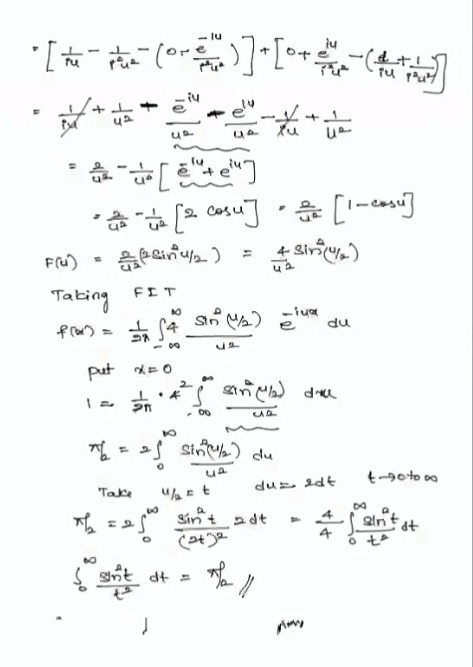 = [ 1/iu - 1/i²u² - (0 - e^-iu/i²u²) ] + [ 0 + e^iu/i²u² - ( /iu + 1/i²u²) ]
= 1/iu + 1/u² - e^-iu/u² - e^iu/u² - 1/iu + 1/u²
= 2/u² - 1/u² [ e^-iu + e^iu ]
= 2/u² - 1/u² [ 2 cosu ] = 2/u² [ 1-cosu ]
F(u) = 2/u² (2 sin² u/2) = 4/u² sin²(u/2)
Taking FIT
f(x) = 1/2π ∫_-∞^∞ 4 sin²(u/2)/u² e^-iux du
put x=0
1 = 1/2π · 4² ∫_-∞^∞ sin²(u/2)/u² du
π/2 = 2 ∫_0^∞ sin²(u/2)/u² du
Take u/2 = t du = 2dt t→0 to ∞
π/2 = 2 ∫_0^∞ sin²t/(2t)² 2dt = 4/4 ∫_0^∞ sin²t/t² dt
∫_0^∞ sin²t/t² dt = π/2 //